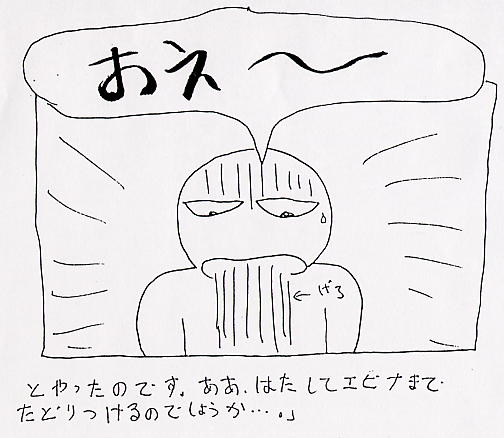 おえ〜
←げろ
とやったのです。ああ、はたしてエビナまで
たどりつけるのでしょうか…。」